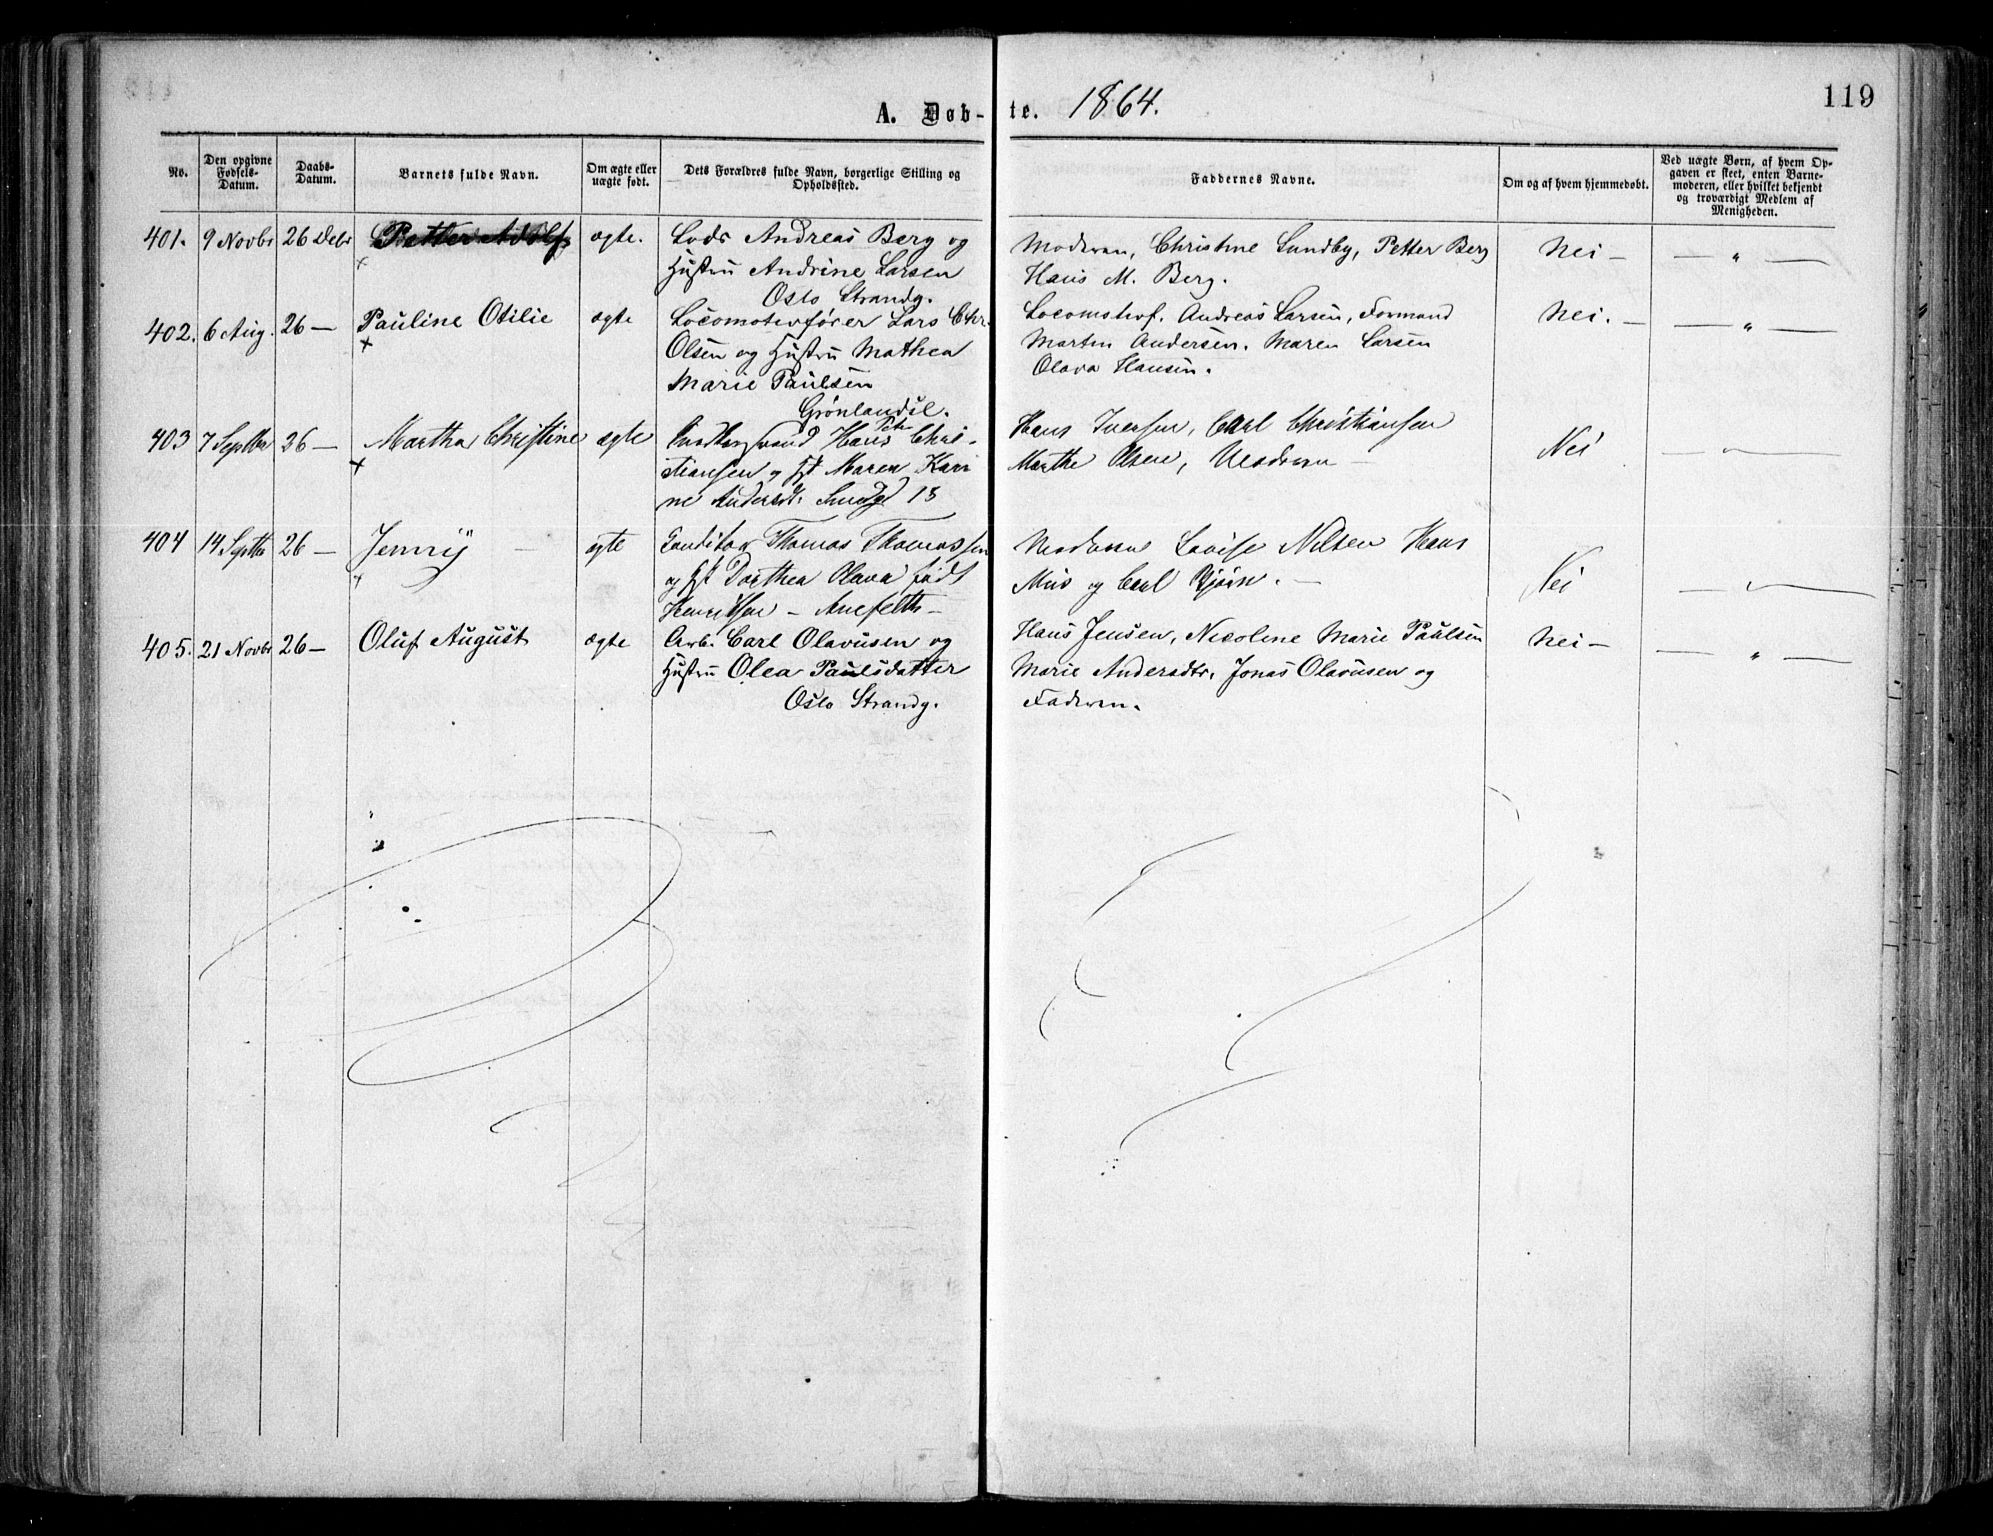 119
A. Døb-te. 1864.
No.
Den opgivne Fødsels-Datum.
Daabs-Datum.
Barnets fulde Navn.
Om ægte eller uægte født.
Dets Forældres fulde Navn, borgerlige Stilling og Opholdssted.
Faddernes Navne.
Om og af hvem hjemmedøbt.
Ved uægte Børn, af hvem Op-
gaven er skeet, enten Barne-
moderen, eller hvilket bekjendt
og troværdigt Medlem af
Menigheden.
401. 9 Novbr 26 Debr Petter Adolf ægte. Lods Andreas Berg og
Hustru Andrine Larsen
Oslo Strandg.
Moderen, Christine Lundby, Petter Berg
Hans M. Berg.
Nei — — " —
402. 6 Aug. 26 — Pauline Otilie ægte Locomotivfører Lars Chr.
Olsen og Hustru Mathea
Marie Paulsen
Grønlandsl.
Locomotivf. Andreas Larsen, Formand
Martin Andersen. Maren Larsen
Olava Hansen.
Nei. — — " —
403 7 Septbr 26 — Martha Christine ægte Hans Chri-
stiansen og Maren Kari
ne Andersdt. 18
Hans Iversen, Carl Christiansen
Marthe Olsen, Moderen —
Nei
404 14 Septbr 26 — Jenny — ægte Thomas Thomassen
og Dorthea Olava født
Henriksen —
Moderen Lovise Nilsen Hans
og Carl Bjørn. —
Nei
405. 21 Novbr 26 — Oluf August ægte Arb. Carl Olavusen og
Hustru Olea Paulsdatter
Oslo Strandg.
Hans Jensen, Nicoline Marie Paulsen
Marie Andersdtr. Jonas Olavusen og
Faderen.
Nei — — " —